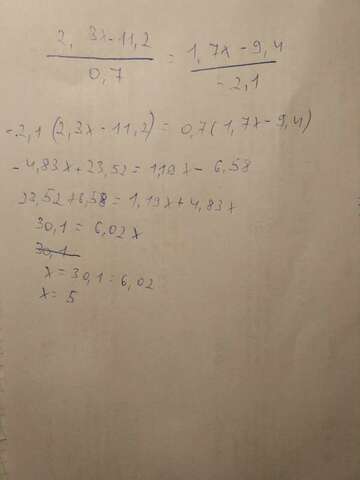 2,3x-11,2 / 0,7 = 1,7x-9,4 / -2,1
-2,1 (2,3x-11,2) = 0,7(1,7x-9,4)
-4,83x+23,52=1,19x-6,58
23,52+6,58=1,19x+4,83x
30,1=6,02x
30,1
x=30,1:6,02
x=5